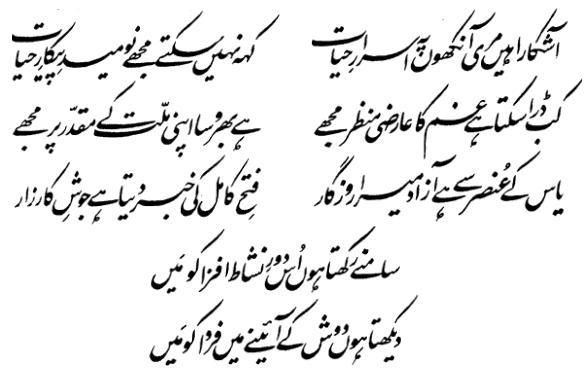 آشکارا ہیں مری آنکھوں پہ اسرارِ حیات کہہ نہیں سکتے مجھے نومیدِ پیکارِ حیات
کب ڈرا سکتا ہے غم کا عارضی منظر مجھے ہے بھروسا اپنی ملّت کے مقدّر پر مجھے
یاس کے عُنصر سے ہے آزاد میرا روزگار فتحِ کامل کی خبر دیتا ہے جوشِ کارزار
سامنے رکھتا ہوں اُس دورِ نشاط افزا کو مَیں
دیکھتا ہوں دوش کے آئینے میں فردا کو مَیں